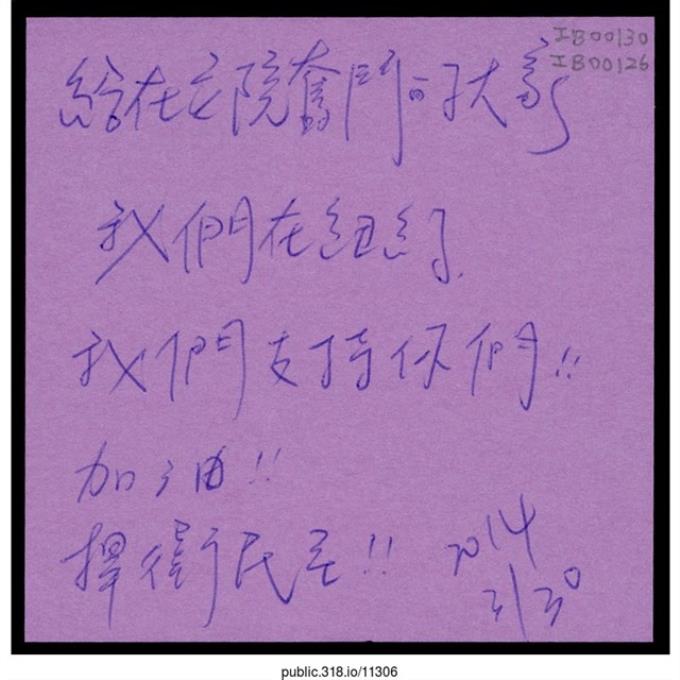 IB00130
IB00126
給在立院奮鬥的大家
我們在紐約.
我們支持你們!!
加油!!
捍衛民主!! 2014
3/30
public.318.io/11306